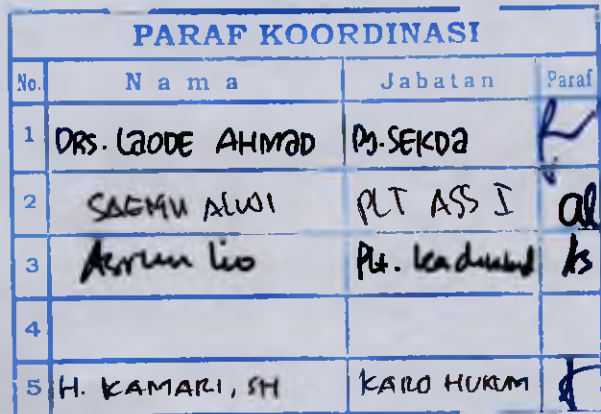 PARAF KOORDINASI
No. Nama Jabatan Paraf
1 DRS. LAODE AHMAD Pj. SEKDA
2 SAEMU ALWI PLT ASS I al
3 Asrun Lio Plt. As
4
5 H. KAMARI, SH KARO HUKUM